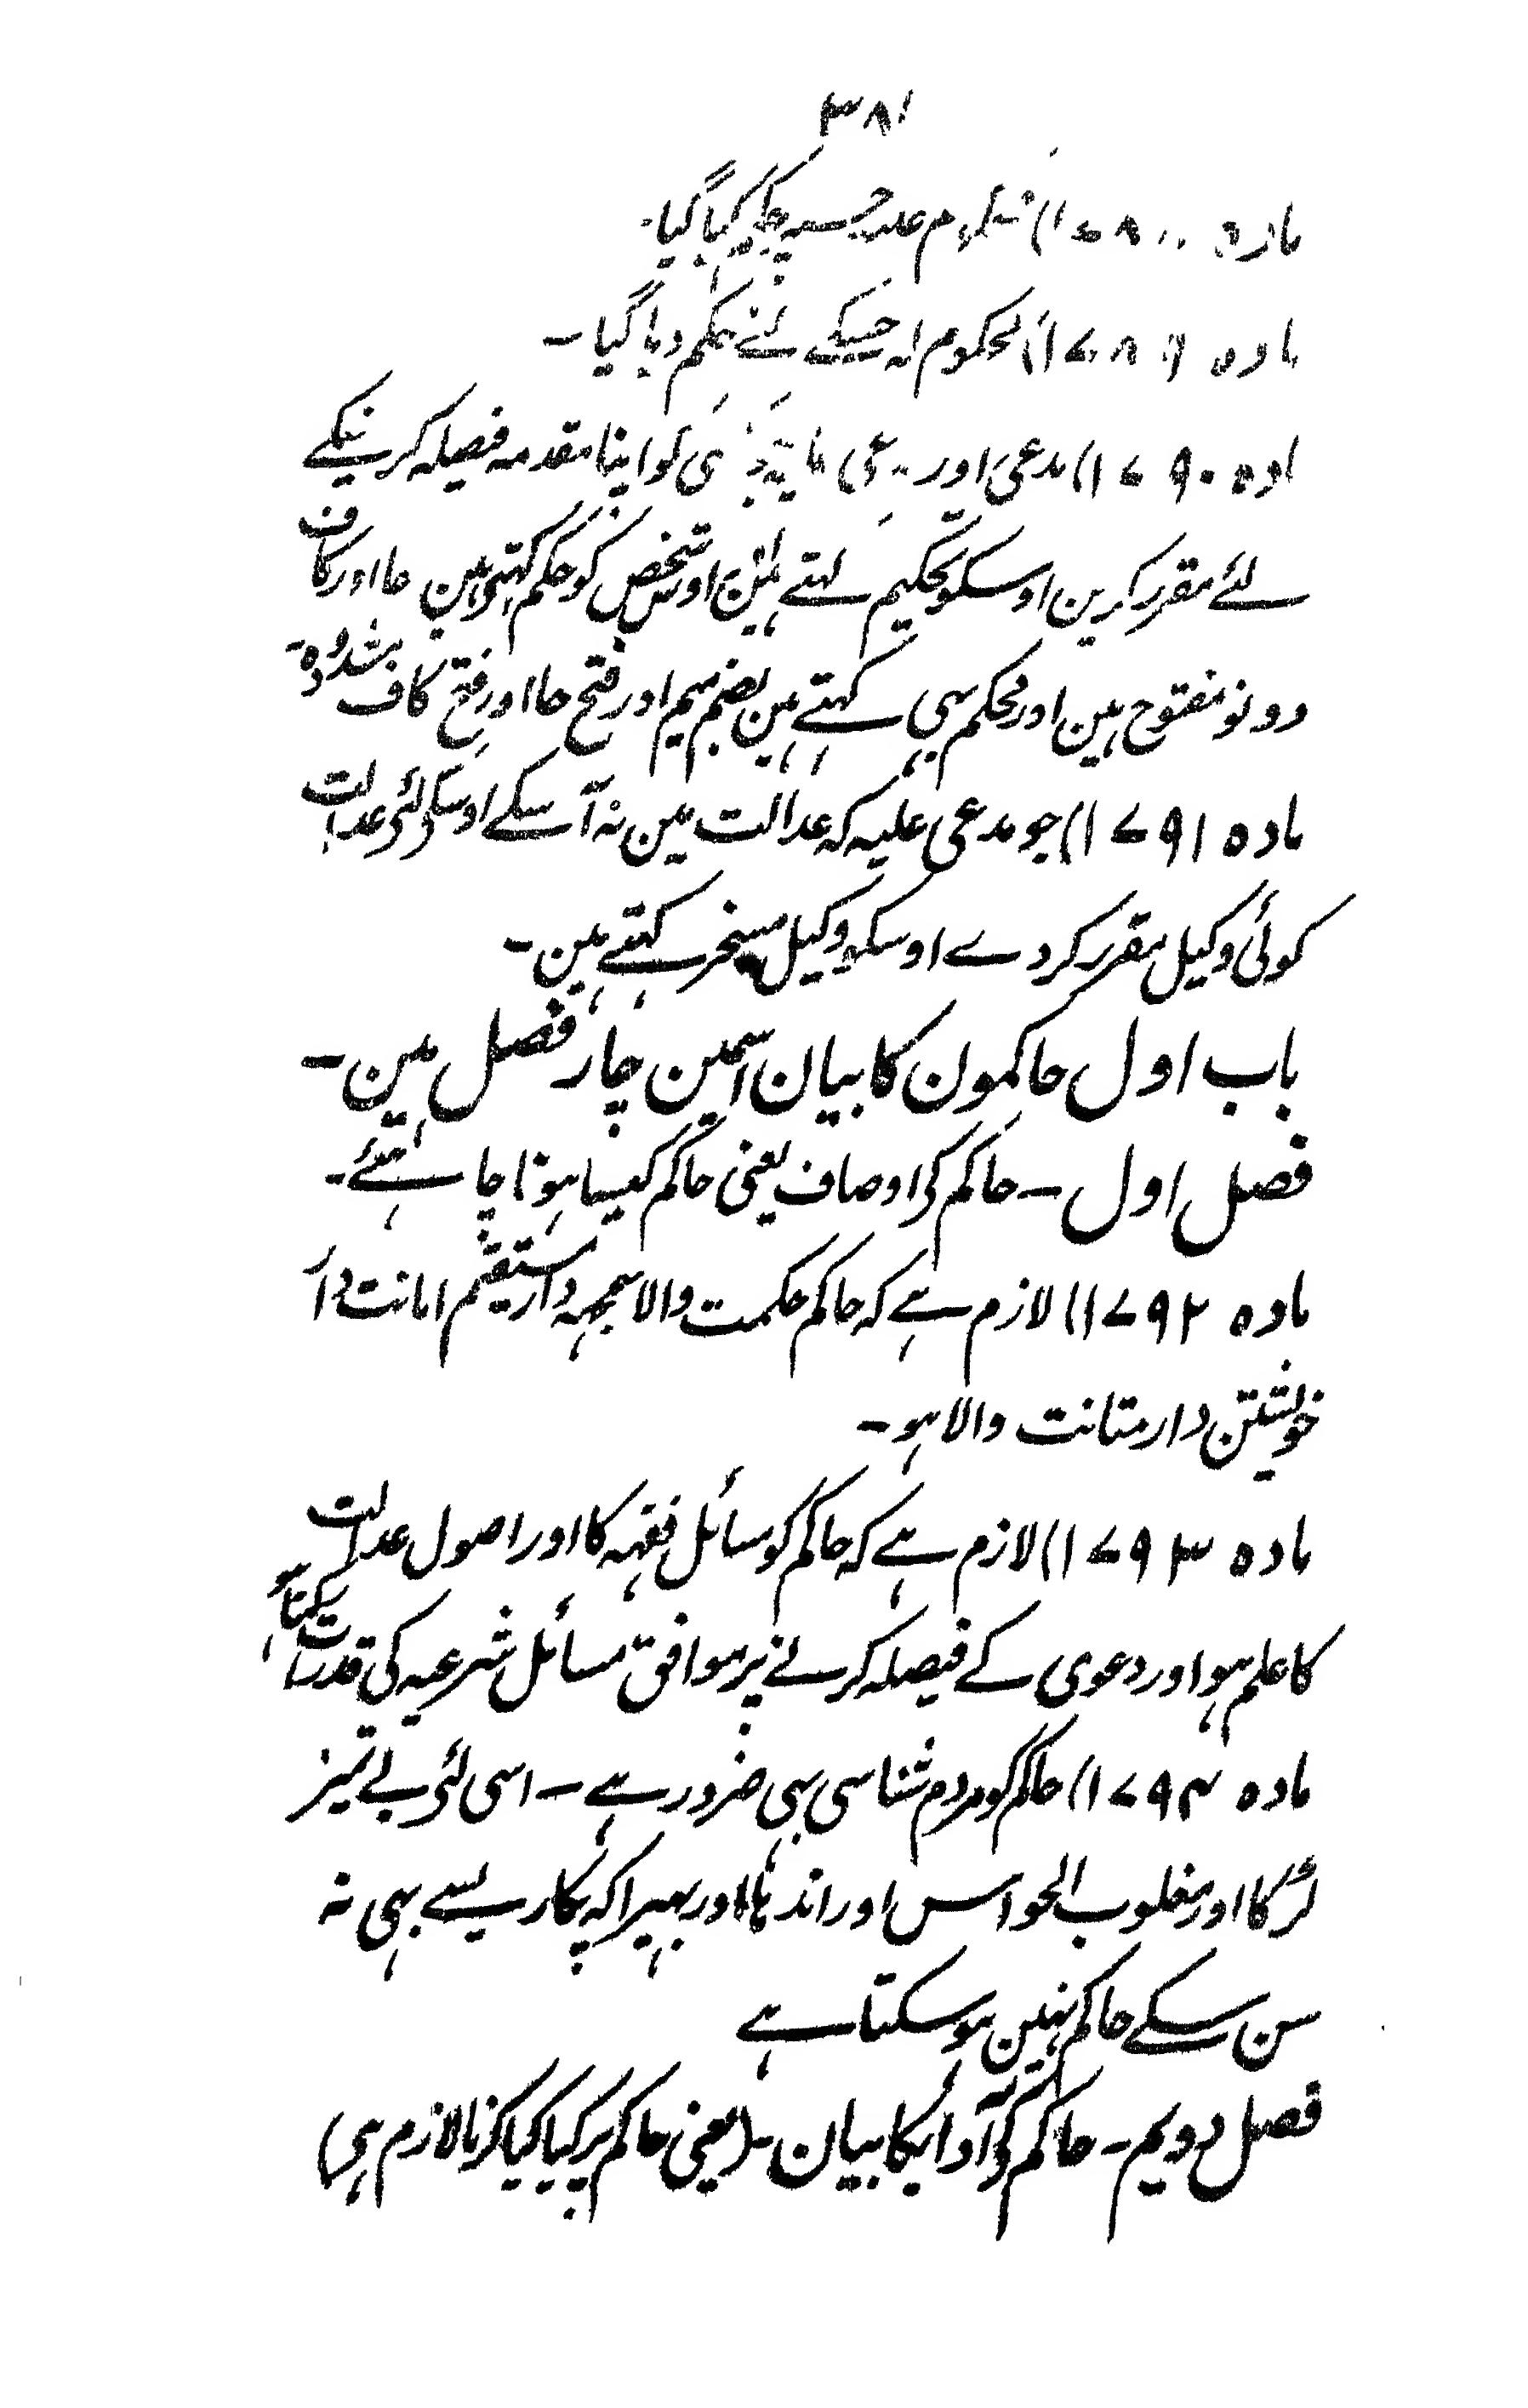 ۳۸۱
مادہ ۱۷۸۸) محکوم علیہ جسپر حکم کیا گیا۔
مادہ ۱۷۸۹) محکوم لہ جسکے لئے حکم دیا گیا۔
مادہ ۱۷۹۰) مدعی اور مدعی علیہ کو اپنا مقدمہ فیصلہ کرنیکے
لئے مقرر کرین اوسکو تحکیم کہتے ہین اوس شخص کو حکم کہتی ہین حا اور کاف
دونو مفتوح ہین اور محکم بہی کہتے ہین بضم میم اور فتح حا اور فتح کاف مشددہ۔
مادہ ۱۷۹۱) جو مدعی علیہ کہ عدالت مین نہ آسکے اوسکی لئی عدالت
کوئی وکیل مقرر کردے اوسکو وکیل مسخر کہتے ہین۔
باب اول حاکمون کا بیان اسمین چار فصل ہین۔
فصل اول ۔ حاکم کی اوصاف یعنی حاکم کیسا ہونا چاہئے۔
مادہ ۱۷۹۲) لازم ہے کہ حاکم حکمت والا سمجہہ دار مستقیم امانت دار
خویشتن دار متانت والا ہو۔
مادہ ۱۷۹۳) لازم ہے کہ حاکم کو مسائل فقہہ کا اور اصول عدالت
کا علم ہو اور دعوی کے فیصلہ کرنے پر موافق مسائل شرعیہ کی قدرت رکہتا ہو
مادہ ۱۷۹۴) حاکم کو مردم شناسی بہی ضرور ہے ۔ اسی لئی بے تمیز
لڑکا اور مغلوب الحواس اور اندہا اور بہیرا کہ پکار یسے بہی نہ
سن سکے حاکم نہین ہو سکتا ہے
فصل دویم ۔ حاکم کی آدابکا بیان ۔ (یعنی حاکم پر کیا کیا کرنا لازم ہی)